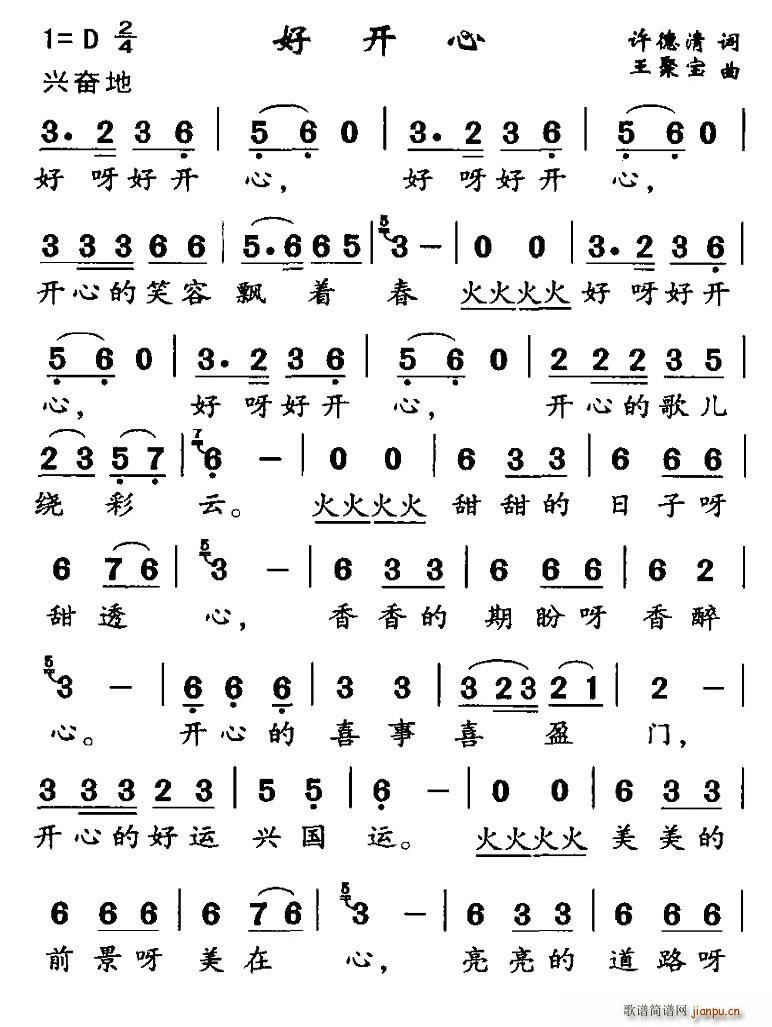 1= D 2/4 好开心 许德清 词
王聚宝 曲
兴奋地
3. 2 3 6 | 5 6 0 | 3. 2 3 6 | 5 6 0 |
好 呀好开 心， 好 呀好开 心，
3 3 3 6 6 | 5. 6 6 6 5 | 5 3 - | 0 0 | 3. 2 3 6 |
开心的笑容 飘 着 春 火火火火 好 呀好开
5 6 0 | 3. 2 3 6 | 5 6 0 | 2 2 2 3 5 |
心， 好 呀好开 心， 开心的歌儿
2 3 5 7 | 7 6 - | 0 0 | 6 3 3 | 6 6 6 |
绕 彩 云。 火火火火 甜 甜的 日 子呀
6 7 6 | 5 3 - | 6 3 3 | 6 6 6 | 6 2 |
甜 透 心， 香 香的 期 盼呀 香醉
5 3 - | 6 6 6 | 3 3 | 3 2 3 2 1 | 2 - |
心。 开心的 喜事 喜 盈 门，
3 3 3 2 3 | 5 5 | 6 - | 0 0 | 6 3 3 |
开心的好运 兴国 运。 火火火火 美 美的
6 6 6 | 6 7 6 | 5 3 - | 6 3 3 | 6 6 6 |
前 景呀 美 在 心， 亮 亮的 道 路呀
歌谱简谱网
jianpu.cn